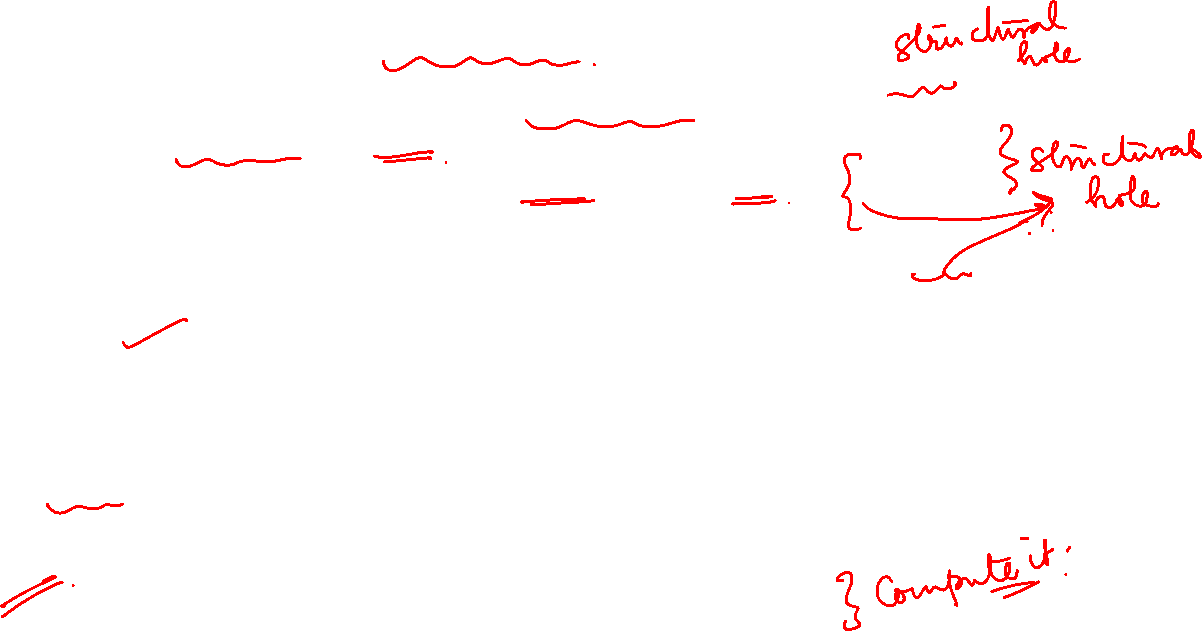 structural
hole
structural
hole
Compute it: